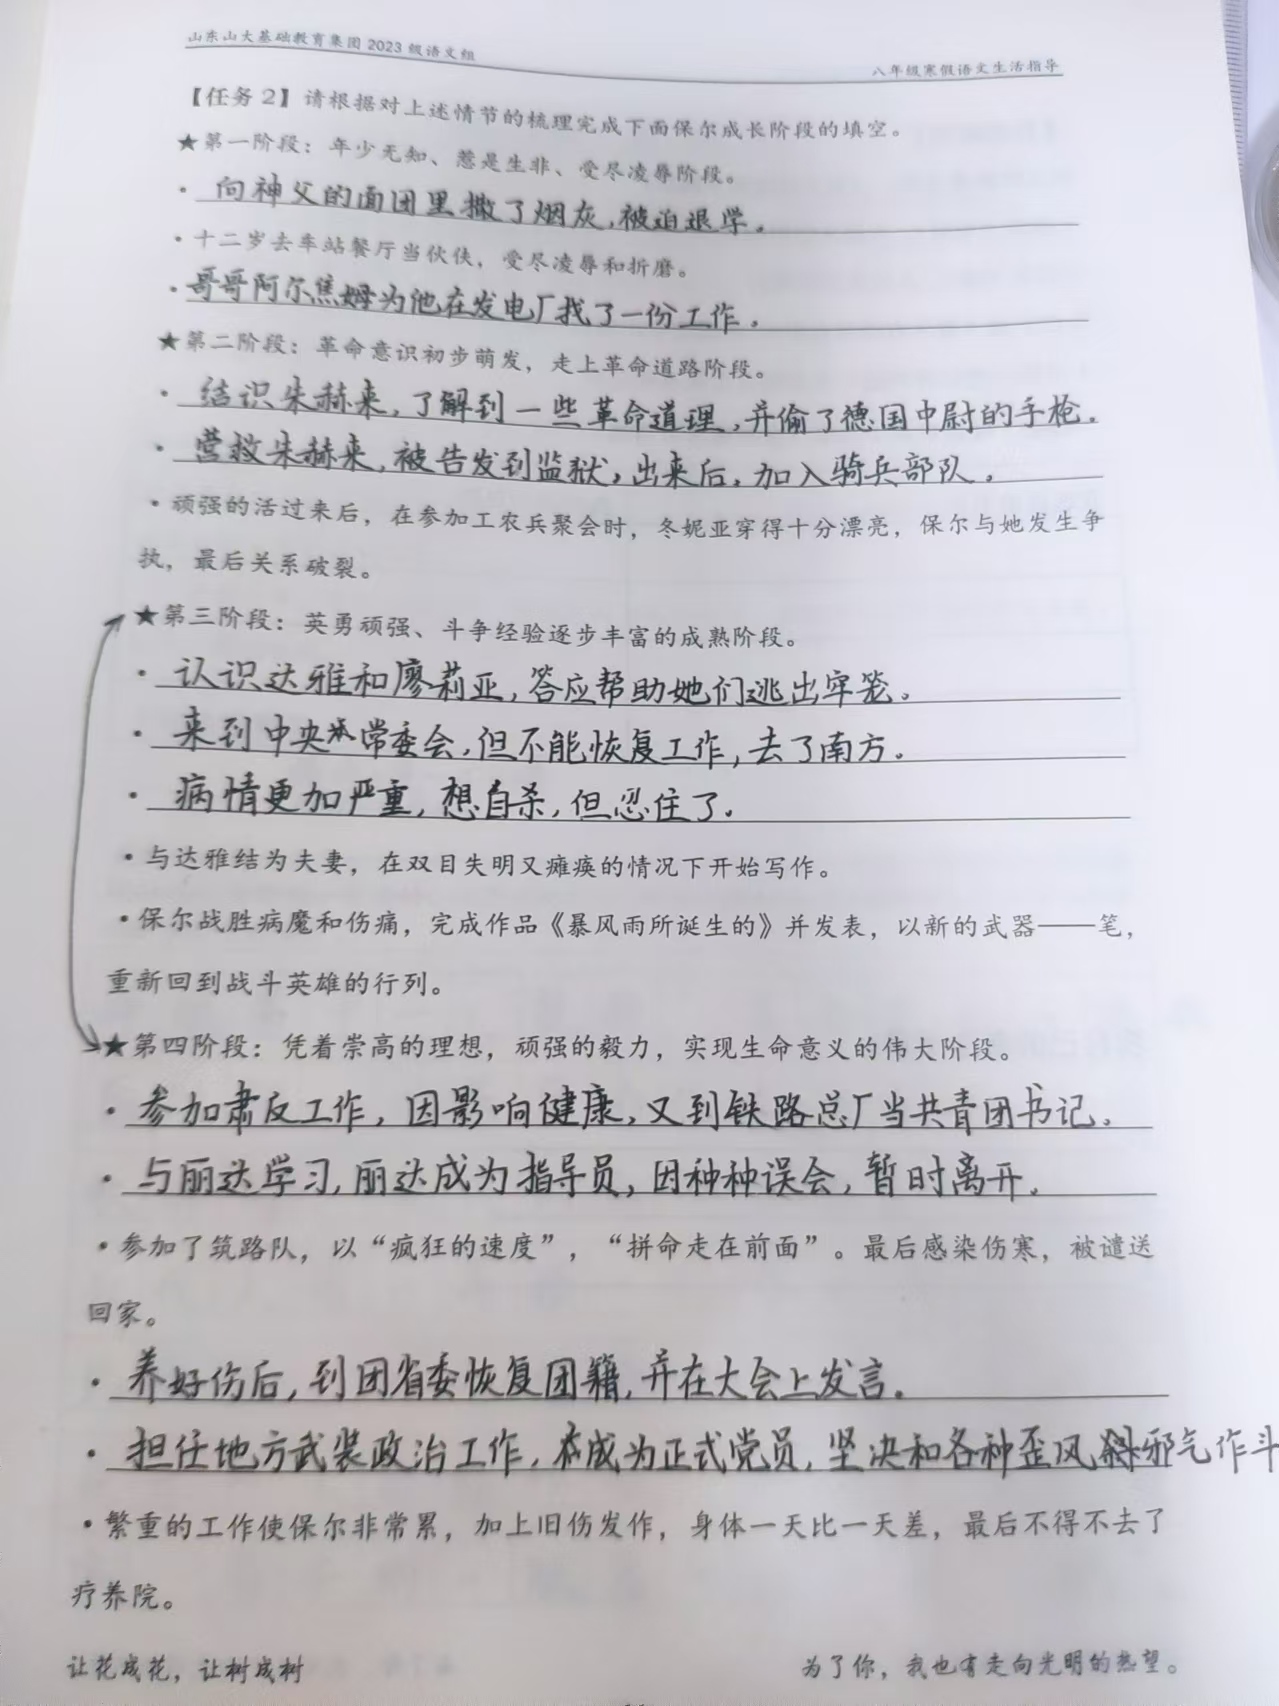 山东山大基础教育集团2023级语文组
八年级寒假语文生活指导
【任务2】请根据对上述情节的梳理完成下面保尔成长阶段的填空。
★第一阶段：年少无知、惹是生非、受尽凌辱阶段。
·向神父的面团里撒了烟灰,被迫退学。
·十二岁去车站餐厅当伙伕，受尽凌辱和折磨。
·哥哥阿尔焦姆为他在发电厂找了一份工作。
★第二阶段：革命意识初步萌发，走上革命道路阶段。
·结识朱赫来,了解到一些革命道理,并偷了德国中尉的手枪。
·营救朱赫来,被告发到监狱,出来后,加入骑兵部队。
·顽强的活过来后，在参加工农兵聚会时，冬妮亚穿得十分漂亮，保尔与她发生争
执，最后关系破裂。
★第三阶段：英勇顽强、斗争经验逐步丰富的成熟阶段。
·认识达雅和廖莉亚,答应帮助她们逃出牢笼。
·来到中央常委会,但不能恢复工作,去了南方。
·病情更加严重,想自杀,但忍住了。
·与达雅结为夫妻，在双目失明又瘫痪的情况下开始写作。
·保尔战胜病魔和伤痛，完成作品《暴风雨所诞生的》并发表，以新的武器——笔，
重新回到战斗英雄的行列。
★第四阶段：凭着崇高的理想，顽强的毅力，实现生命意义的伟大阶段。
·参加肃反工作,因影响健康,又到铁路总厂当共青团书记。
·与丽达学习,丽达成为指导员,因种种误会,暂时离开。
·参加了筑路队，以“疯狂的速度”，“拼命走在前面”。最后感染伤寒，被遣送
回家。
·养好伤后,到团省委恢复团籍,并在大会上发言。
·担任地方武装政治工作,成为正式党员,坚决和各种歪风邪气作斗
·繁重的工作使保尔非常累，加上旧伤发作，身体一天比一天差，最后不得不去了
疗养院。
让花成花，让树成树
为了你，我也有走向光明的热望。